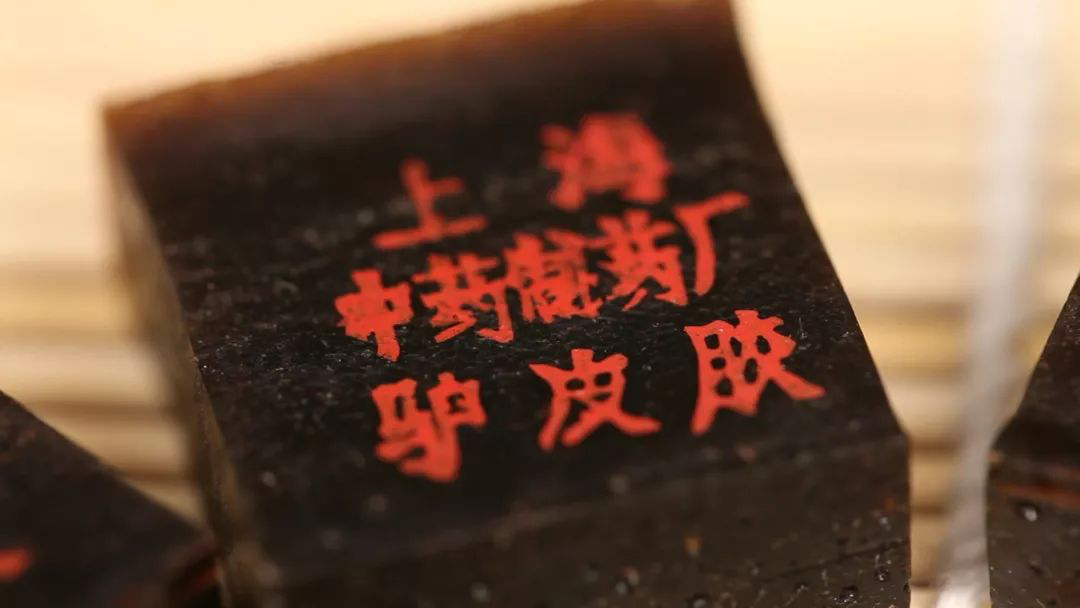 上海
中药制药厂
驴皮胶